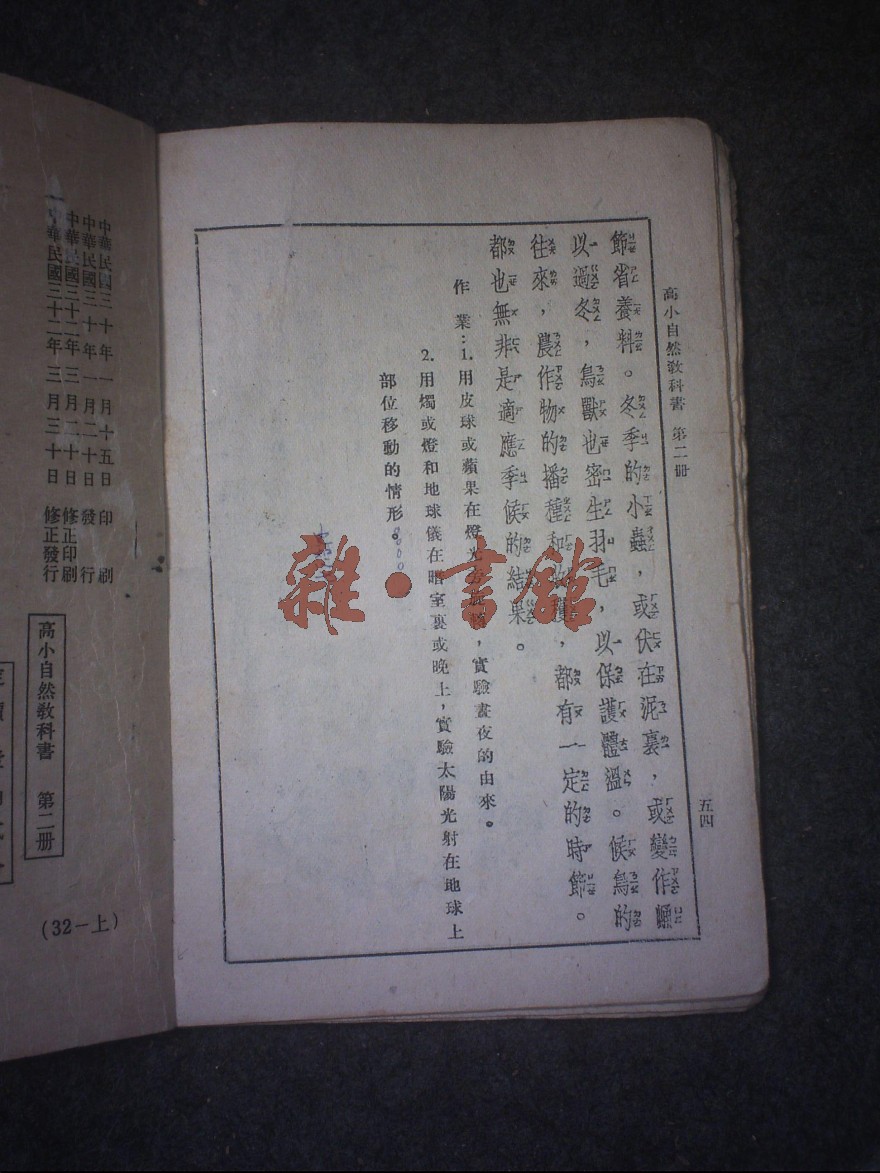 高小自然教科書　第二册
五四
節省養料。冬季的小蟲，或伏在泥裏，或變作蛹
以過冬，鳥獸也密生羽毛，以保護體溫。候鳥的
往來，農作物的播種和收穫，都有一定的時節。
都也無非是適應季候的結果。
作業：1. 用皮球或蘋果在燈光旁旋轉，實驗晝夜的由來。
2. 用燭或燈和地球儀在暗室裏或晚上，實驗太陽光射在地球上
部位移動的情形。
雜·書館
中華民國三十年一月十五日　印刷
中華民國三十年一月二十日　發行
中華民國三十二年三月二十日　修正印刷
中華民國三十二年三月三十日　修正發行
高小自然教科書　第二册
(32－上)